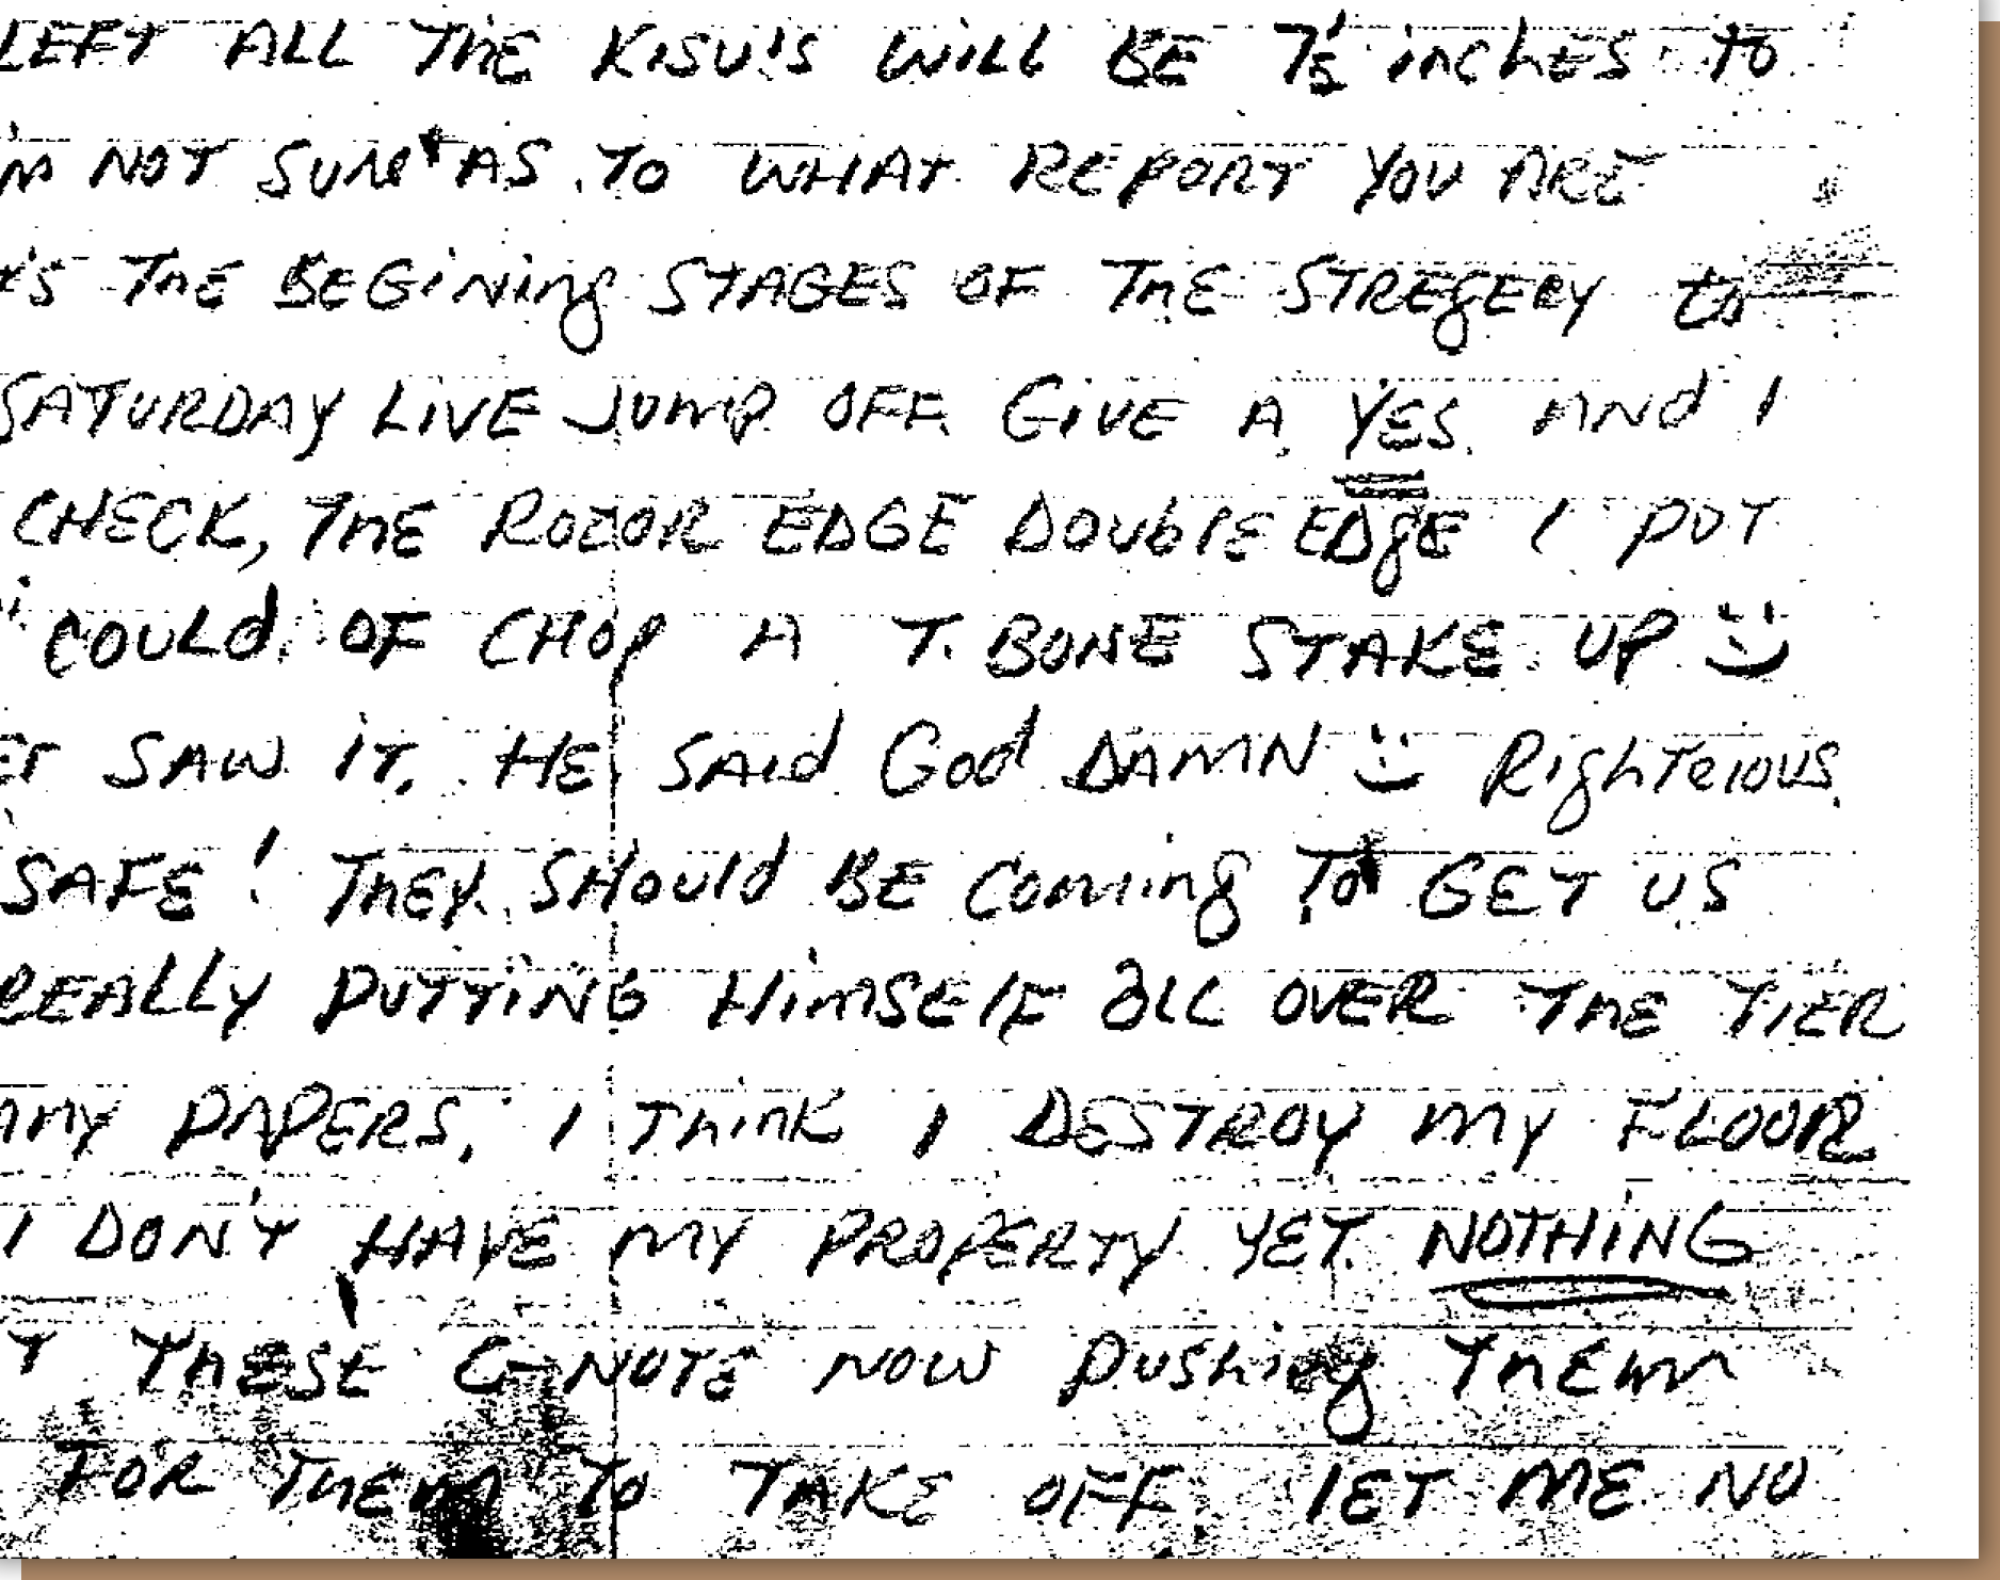 LEFT ALL THE KISU'S WILL BE 7½ inches to
NOT SURE AS TO WHAT REPORT YOU ARE
'S THE BEGINing STAGES OF THE STREGERY to
SATURDAY LIVE JUMP OFF GIVE A YES AND I
CHECK, THE ROZOR EDGE DOUBLE EDGE I PUT
COULD OF CHOP A T. BONE STAKE UP
SAW IT. HE SAID GOD DAMN RighTeious
SAFE! THEY SHOULD BE COMING TO GET US
REALLY PUTTING HIMSELF ALL OVER THE TIER
MY PAPERS, I THINK I DESTROY MY FLOOR
I DON'T HAVE MY PROPERTY YET NOTHING
THESE G-NOTE NOW PUSHING THEM
FOR THEM TO TAKE OFF, LET ME NO